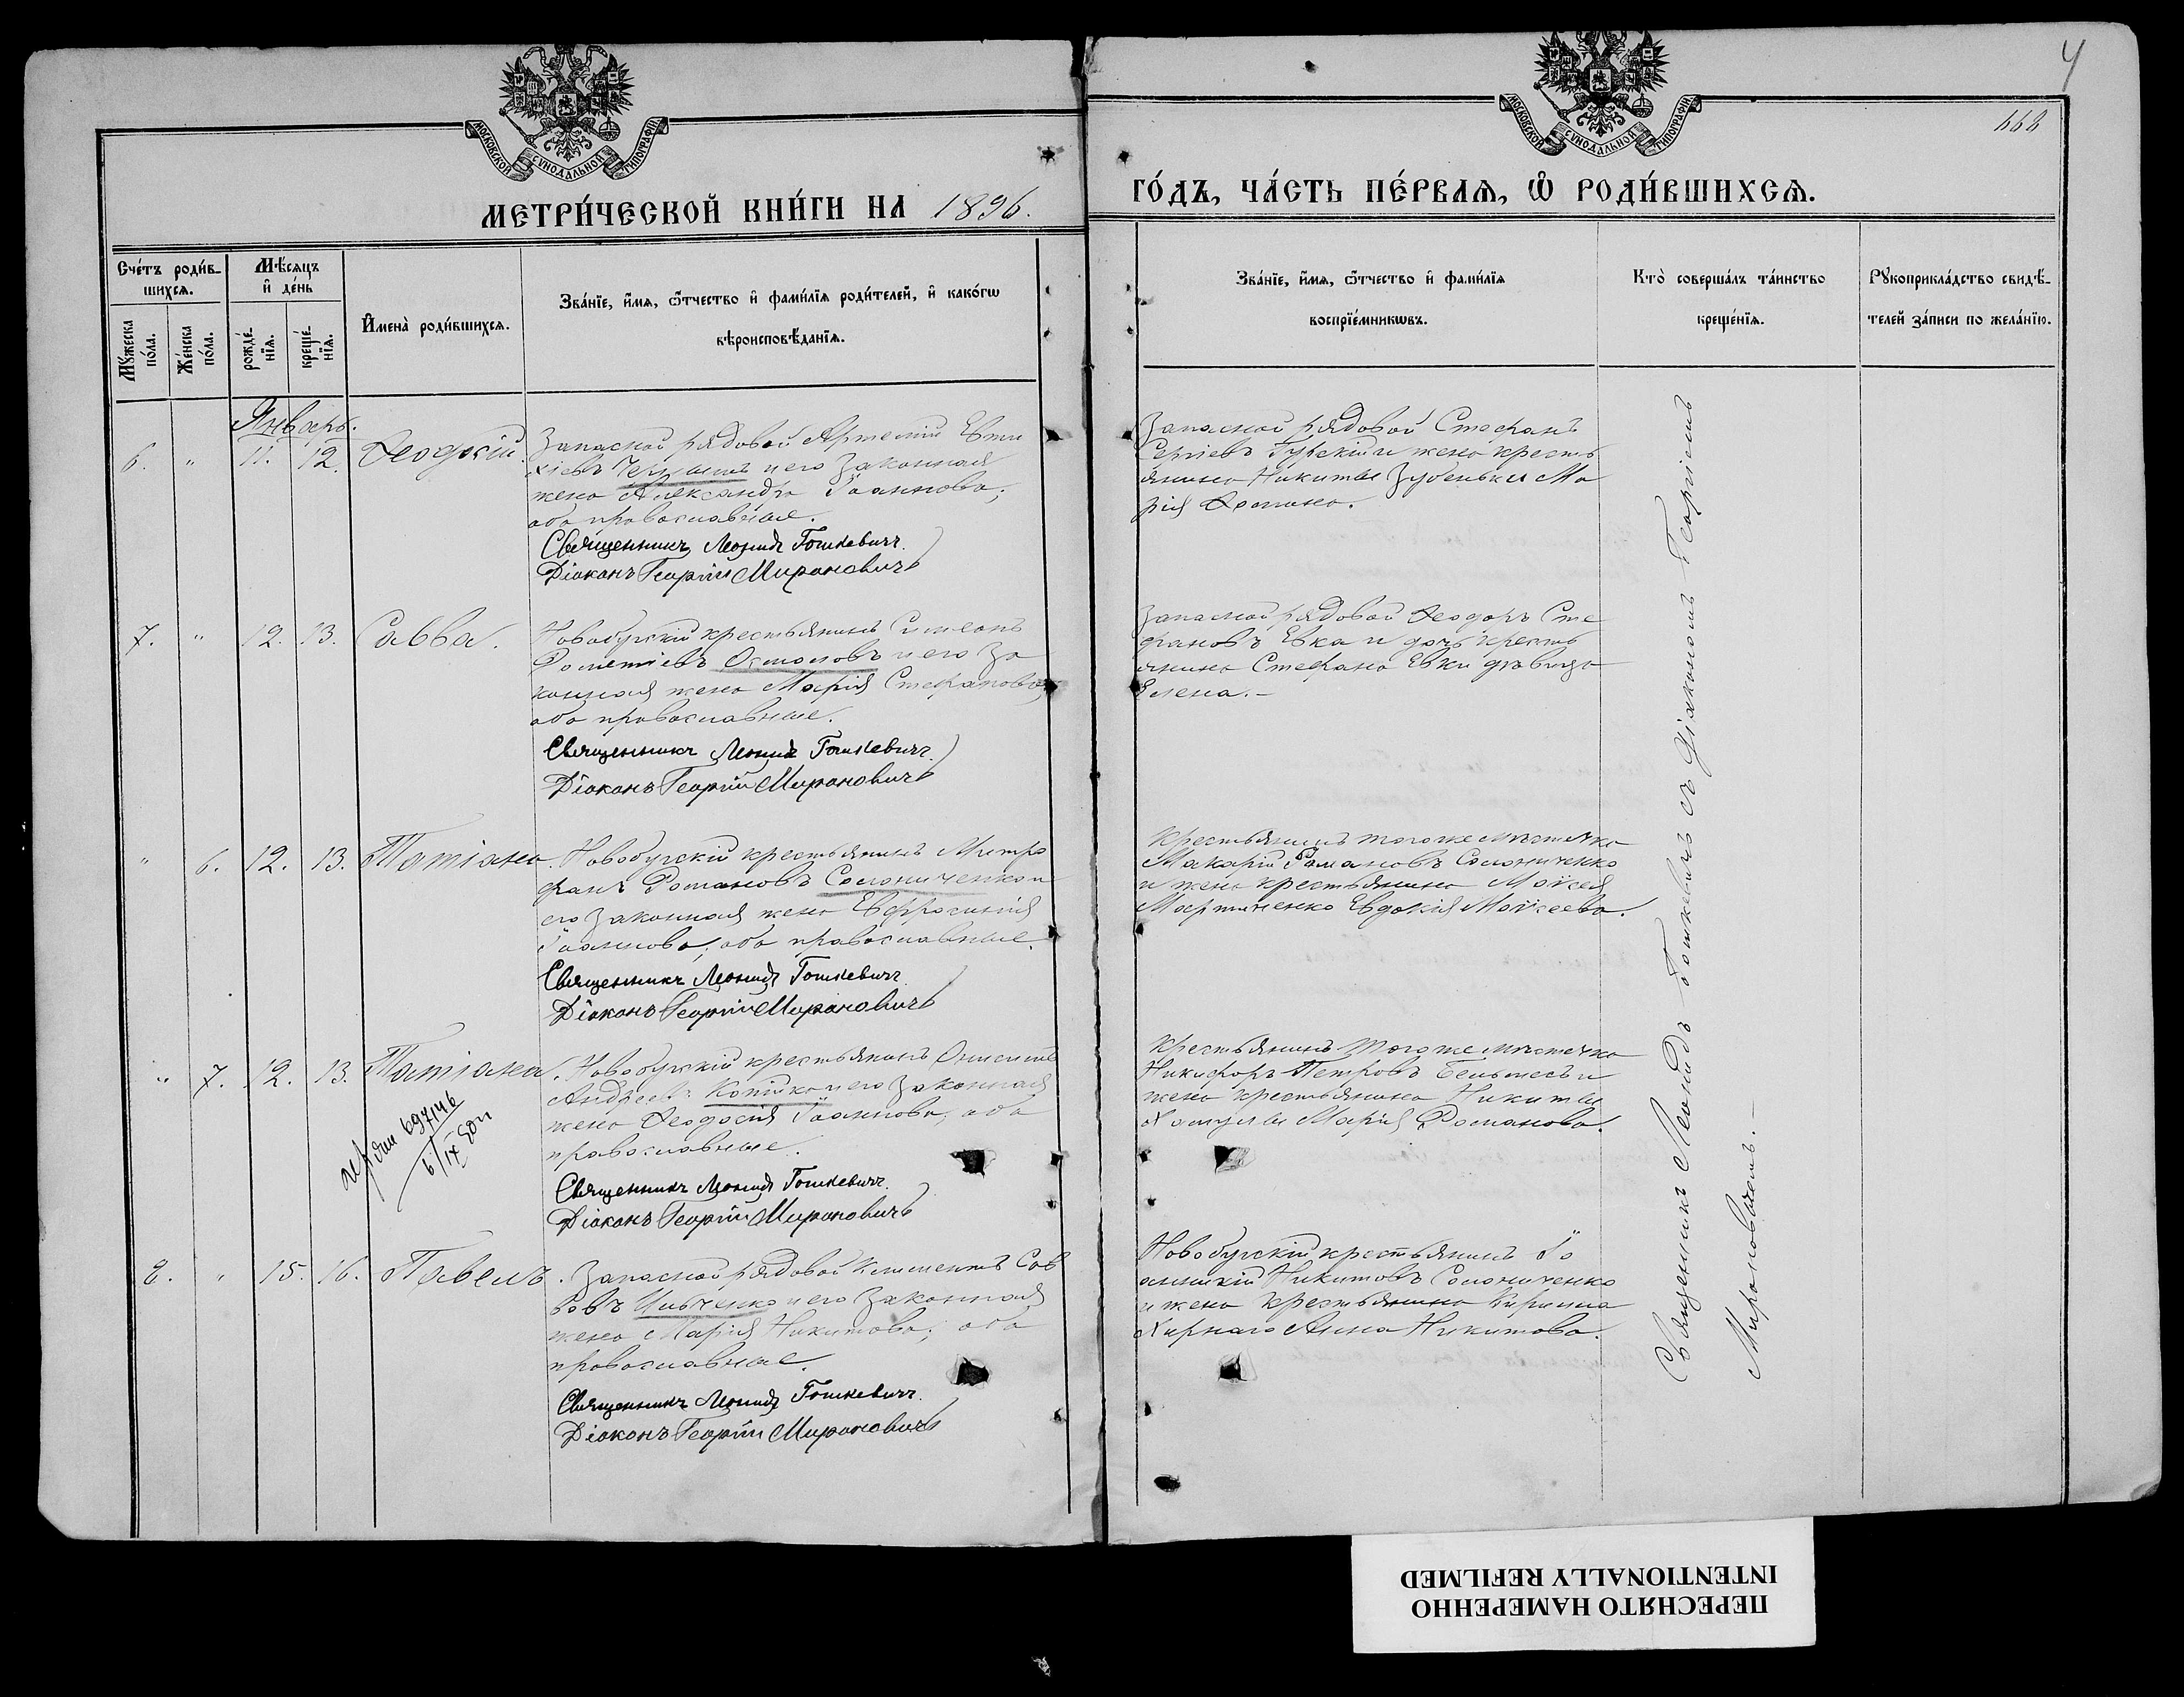 4
668
МОСКОВСКОЙ СѴНОДАЛЬНОЙ ТИПОГРАФІИ
МЕТРИ́ЧЕСКОЙ КНИ́ГИ НА 1896.
МОСКОВСКОЙ СѴНОДАЛЬНОЙ ТИПОГРАФІИ
ГО́ДЪ, ЧА́СТЬ ПЕ́РВАЯ, Ѡ҆ РОДИ́ВШИХСЯ.
Сче́тъ роди́в-
шихсѧ.
Мꙋжеска по́ла.
Же́нска по́ла.
Мѣ́сѧцъ
и҆ де́нь
рожде́-
нїѧ.
креще́-
нїѧ.
И҆мена̀ роди́вшихсѧ.
Зва́нїе, и҆́мѧ, ѻ҆́тчество и҆ фамі́лїѧ роди́телей, и҆ како́гѡ
вѣроисповѣ́данїѧ.
Зва́нїе, и҆́мѧ, ѻ҆́тчество и҆ фамі́лїѧ
воспрїе́мникѡвъ.
Кто̀ соверша́лъ та́инство
креще́нїѧ.
Рꙋкоприкла́дство свидѣ́-
телей за́писи по жела́нїю.
Январь.
6. " 11. 12. Ѳеодосій.
Запасной рядовой Артемій Евти
хіевъ и его законная
жена Александра Іоаннова,
оба православные.
Священникъ Леонидъ Гошкевичъ.
Діаконъ Георгій Мироновичъ
Запасной рядовой Стефанъ
Сергіевъ Гурскій и жена кресть
янина Никиты Зубенька Ма
рія Ѳомина.
7. " 12. 13. Савва.
Новобугскій крестьянинъ Симеонъ
Дометіевъ Остаповъ и его за
конная жена Марія Стефанова,
оба православные.
Священникъ Леонидъ Гошкевичъ.
Діаконъ Георгій Мироновичъ
Запасной рядовой Ѳеодоръ Сте
фановъ Евка и дочь кресть
янина Стефана Евки дѣвица
Елена.-
" 6. 12. 13. Татіана.
Новобугскій крестьянинъ Митро
фанъ Романовъ Солониченко и
его законная жена Евфросинія
Іоаннова, оба православные.
Священникъ Леонидъ Гошкевичъ.
Діаконъ Георгій Мироновичъ
Крестьянинъ тогоже мѣстечка
Макарій Романовъ Солониченко
и жена крестьянина Моѵсея
Мартыненко Евдокія Моѵсеева.
" 7. 12. 13. Татіана.
697146
6/IX
Новобугскій крестьянинъ
Андреевъ и его законная
жена Ѳеодосія Іоаннова, оба
православные.
Священникъ Леонидъ Гошкевичъ.
Діаконъ Георгій Мироновичъ
Крестьянинъ тогоже мѣстечка
Никифоръ Петровъ Бельмесъ и
жена крестьянина Никиты
Марія Романова.
8. " 15. 16. Павелъ.
Запасной рядовой Климентъ Сав
вовъ Ильченко и его законная
жена Марія Никитова, оба
православные.
Священникъ Леонидъ Гошкевичъ.
Діаконъ Георгій Мироновичъ
Новобугскій крестьянинъ Іо
анникій Никитовъ Солониченко
и жена крестьянина Кирилла
Хирнаго Анна Никитова.
Священникъ Леонидъ Гошкевичъ съ Діакономъ Георгіемъ
Мироновичемъ.-
ПЕРЕСНЯТО НАМЕРЕННО
INTENTIONALLY REFILMED